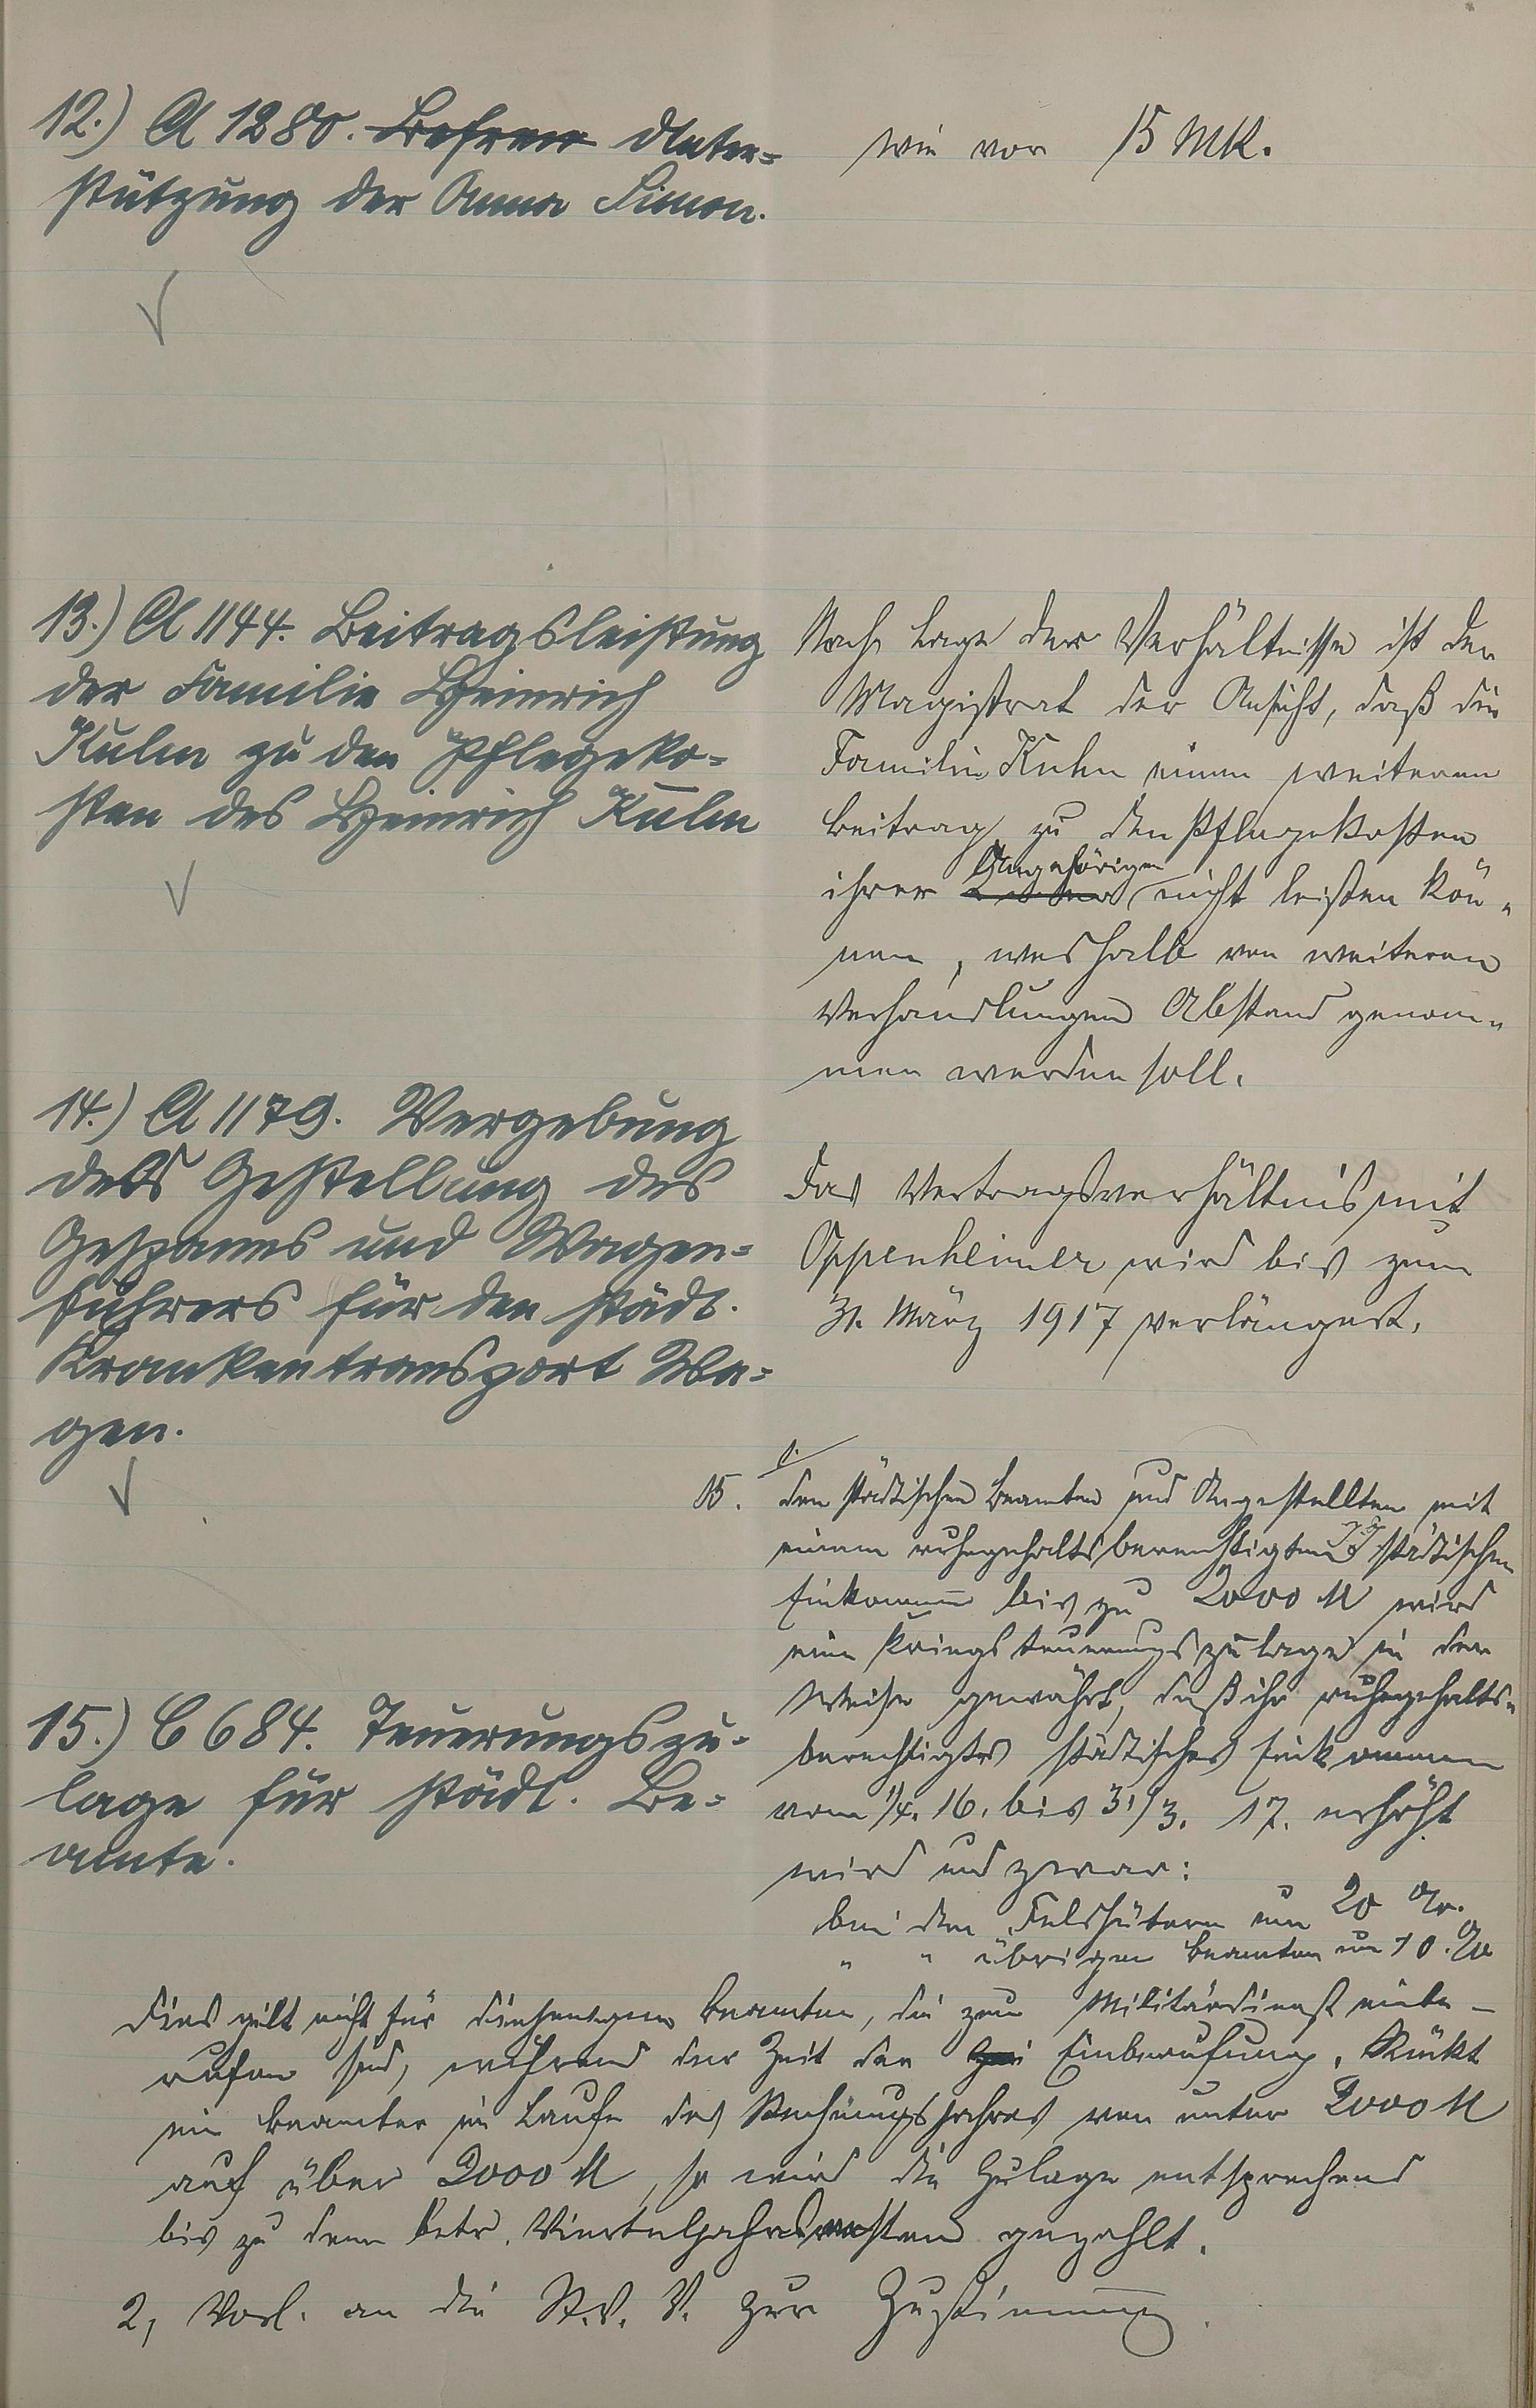 12.) A 1280. Unter-
stützung der Anna Simon.
wie vor 15 Mk.
13.) A 1144. Beitragsleistung
der Familie Heinrich
Kuhn zu den Pflegeko-
sten des Heinrich Kuhn
Nach Lage der Verhältnisse ist der
Magistrat der Ansicht, daß die
Familie Kuhn einen weiteren
Beitrag zu den Pflegekosten
ihrer Angehörigen nicht leisten kön-
nen, weshalb von weiteren
Verhandlungen Abstand genom-
men werden soll.
14.) A 1179. Vergebung
der Gestellung des
Gespanns und Wagen-
führers für den städt.
Krankentransport Wa-
gen.
Das Vertragsverhältnis mit
Oppenheimer wird bis zum
31. März 1917 verlängert.
15.) C 684. Teuerungszu-
lage für städt. Be-
amte.
1.
15. Den städtischen Beamten und Angestellten mit
einem ruhegehaltsberechtigten städtischen
Einkommen bis zu 2000 M wird
eine Kriegsteuerungszulage in der
Weise gewährt, daß ihr ruhegehalts-
berechtigtes städtisches Einkommen
vom 1/4. 16. bis 31/3. 17. erhöht
wird und zwar:
bei den Feldhütern um 20 %.
" " übrigen Beamten um 10 %
Dies gilt nicht für diejenigen Beamten, die zum Militärdienst einbe-
rufen sind, während der Zeit der Einberufung. Rückt
ein Beamter im Laufe des Rechnungsjahres von unter 2000 M
auf über 2000 M, so wird die Zulage entsprechend
bis zu dem betr. Vierteljahrsersten gezahlt.
2, Vorl. an die St. V. V. zur Zustimmung.